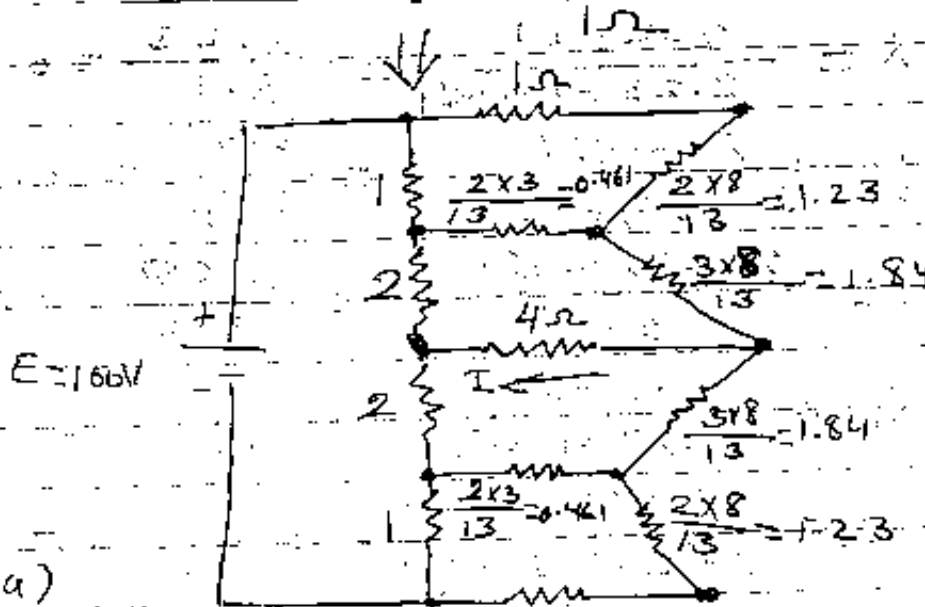 1Ω
1Ω
1
2×3/13 =0.461
2×8/13 = 1.23
2
3×8/13 = 1.84
+
4Ω
E=100V
I
2
3×8/13 =1.84
1
2×3/13 =0.461
2×8/13 = 1.23
a)